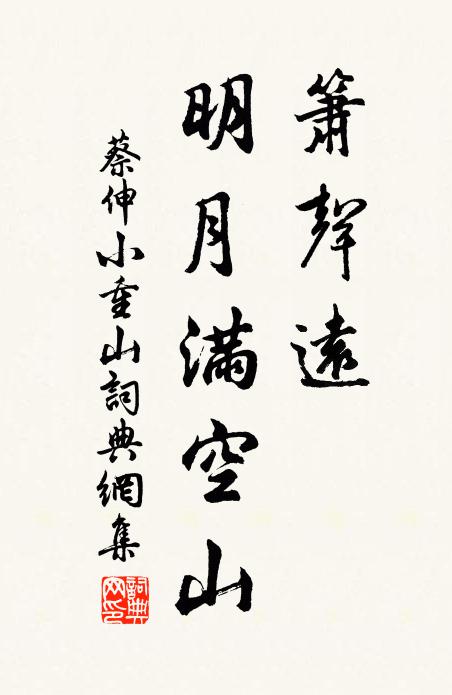 簫聲遠
明月滿空山
蔡伸小重山詞典網集
詞典网印